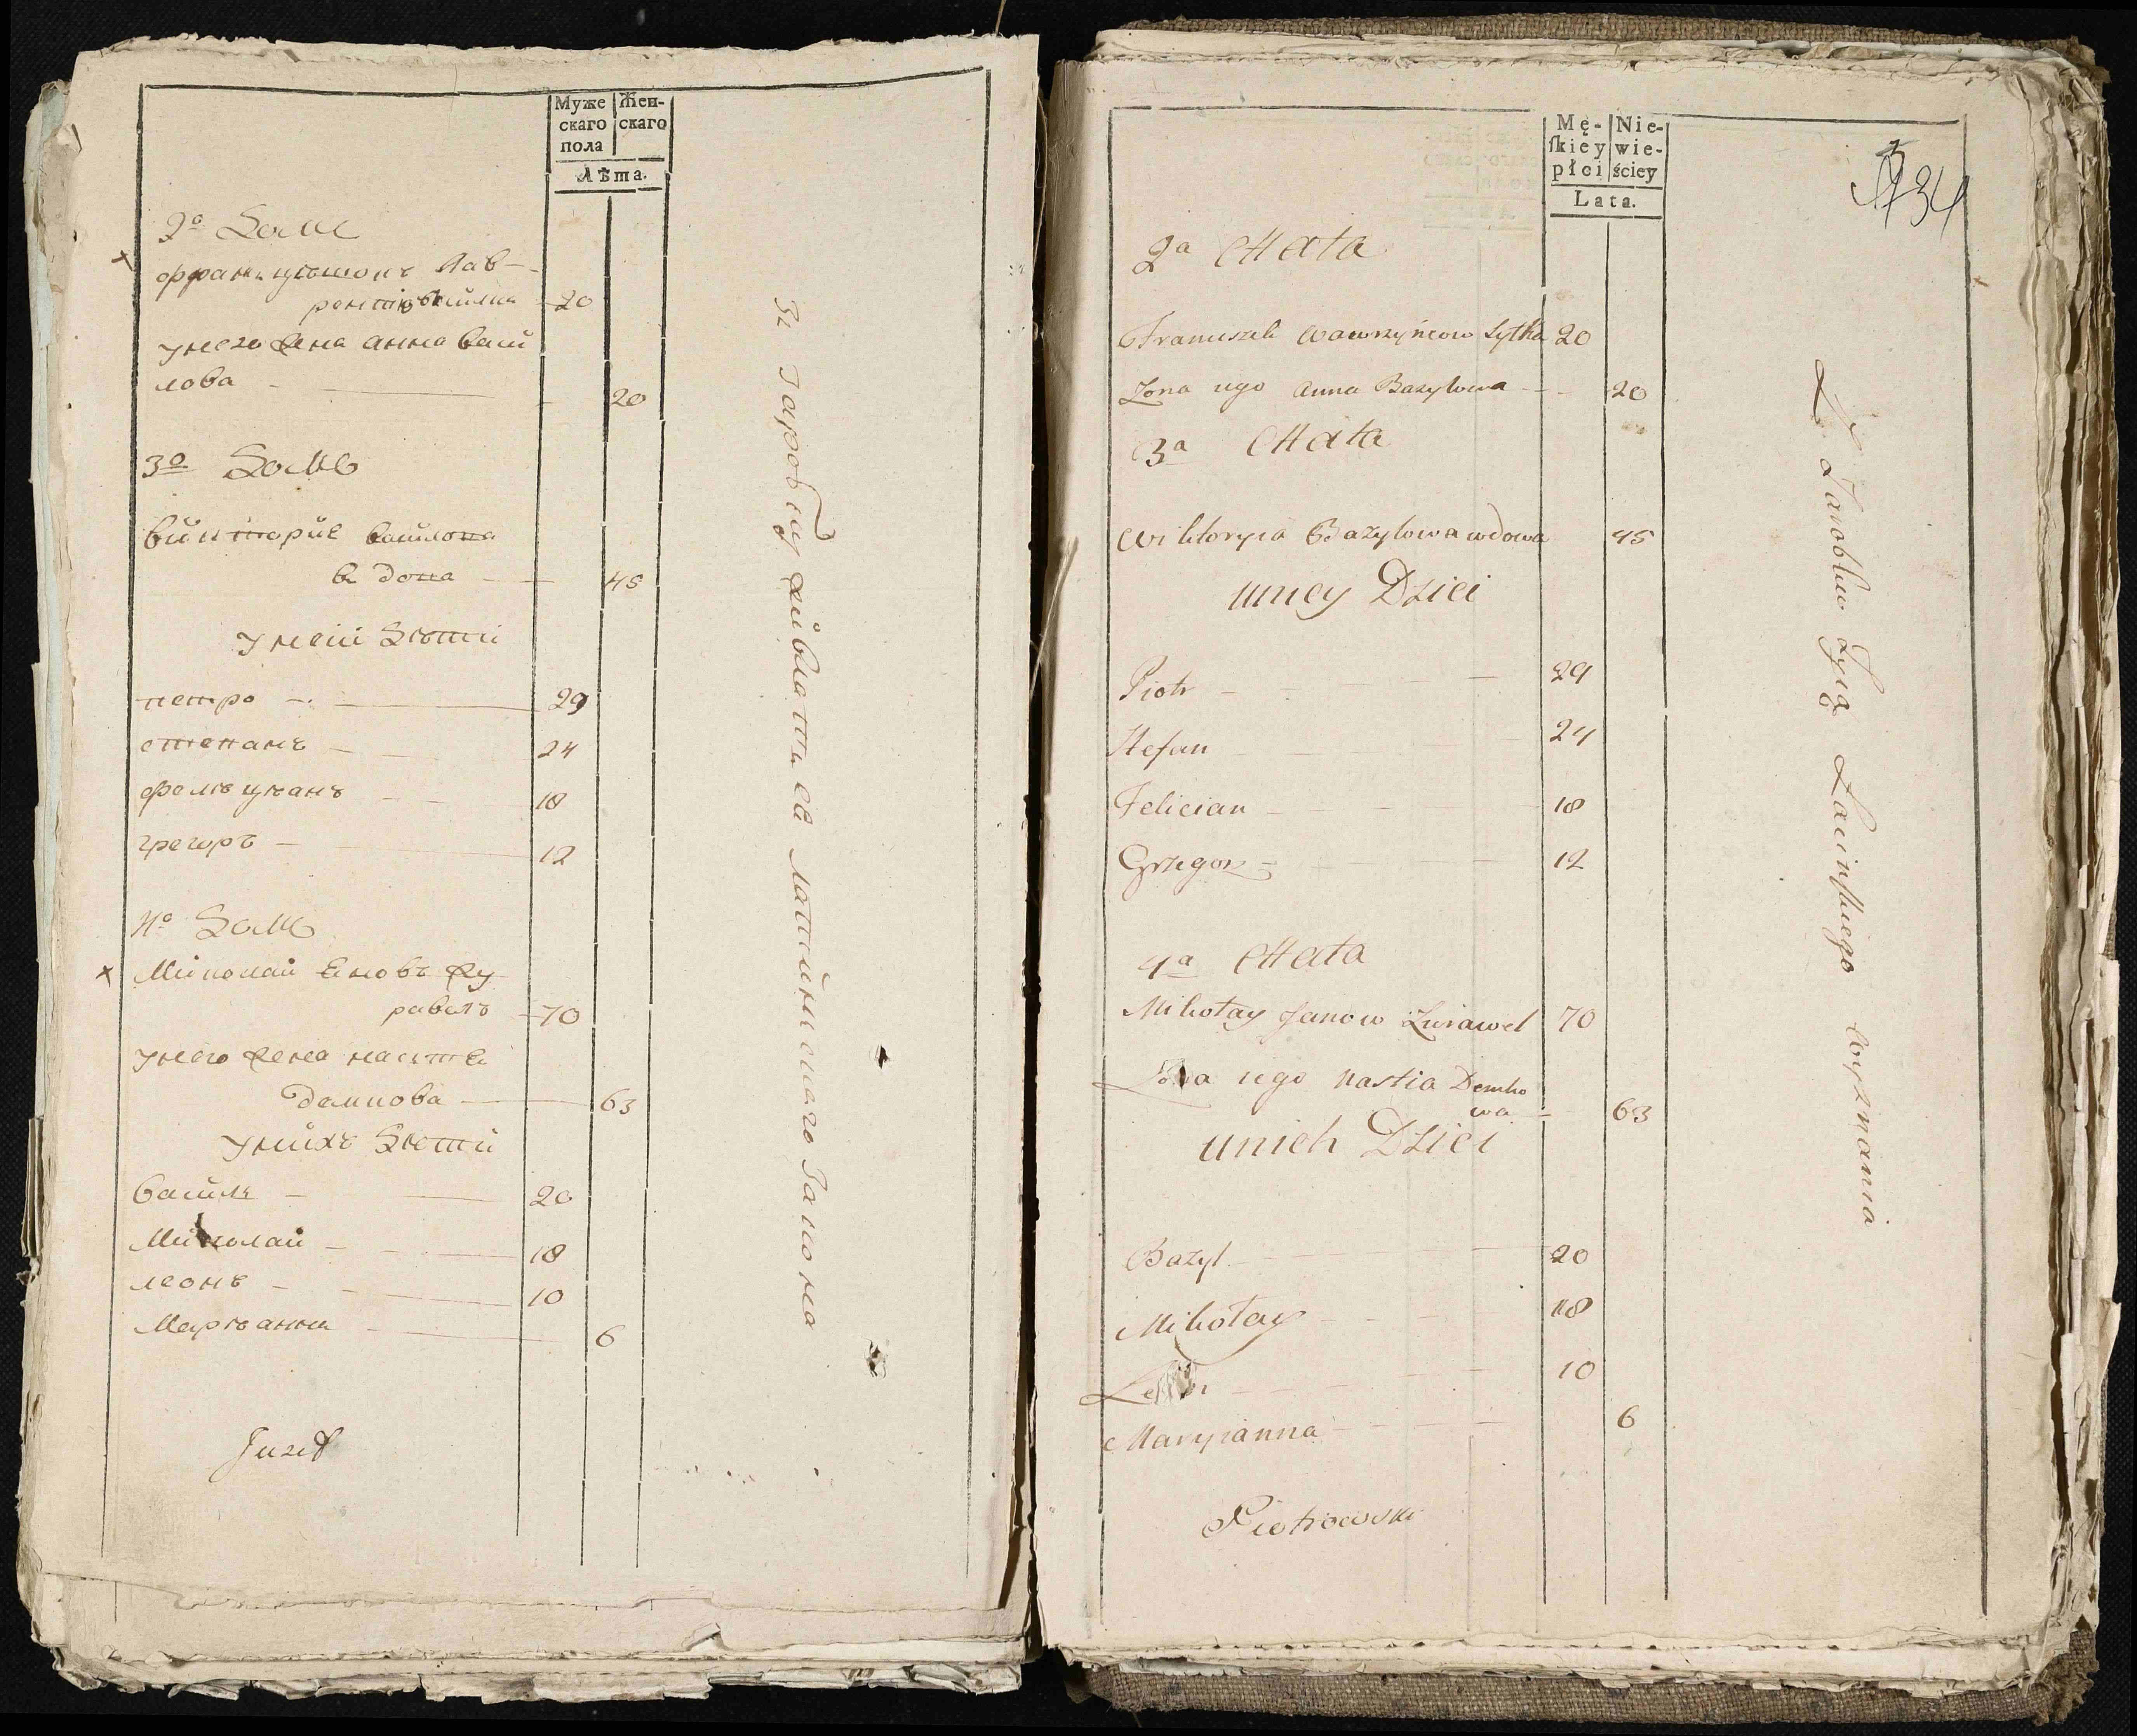 Муже
скаго
пола
Жен-
скаго
Лѣта.
2º Дом
Францышокъ Лав-
20
у него жена Анна Васи
лова
20
3º Домъ
Викторие Василова
вдова
45
у неи дѣти
петро
29
степанъ
24
фелѣцѣанъ
18
грегоръ
12
4º Домъ
Миколаи Яновъ Жу
равель
70
у него жена настя
демкова
63
у нихъ дѣти
василь
20
Миколаи
18
леонъ
10
Марѣанна
6
Juzef
Mę-
skiey
płci
Nie-
wie-
ściey
Lata.
34
2a Chata
Franciszek Wawrzyńcow Sytka 20
Zona iego Anna Bazylowa 20
3a Chata
Wiktoryia Bazylowa wdowa 45
u niey Dzieci
Piotr 29
Stefan 24
Felician 18
Grzegorz 12
4a Chata
Mikołay Janow Zurawel 70
Zona iego Nastia Demko
wa 63
u nich Dzieci
Bazyl 20
Mikołay 18
10
Maryianna 6
Piotrowski
Z Zarobku Zyią Łacinskiego wyznania